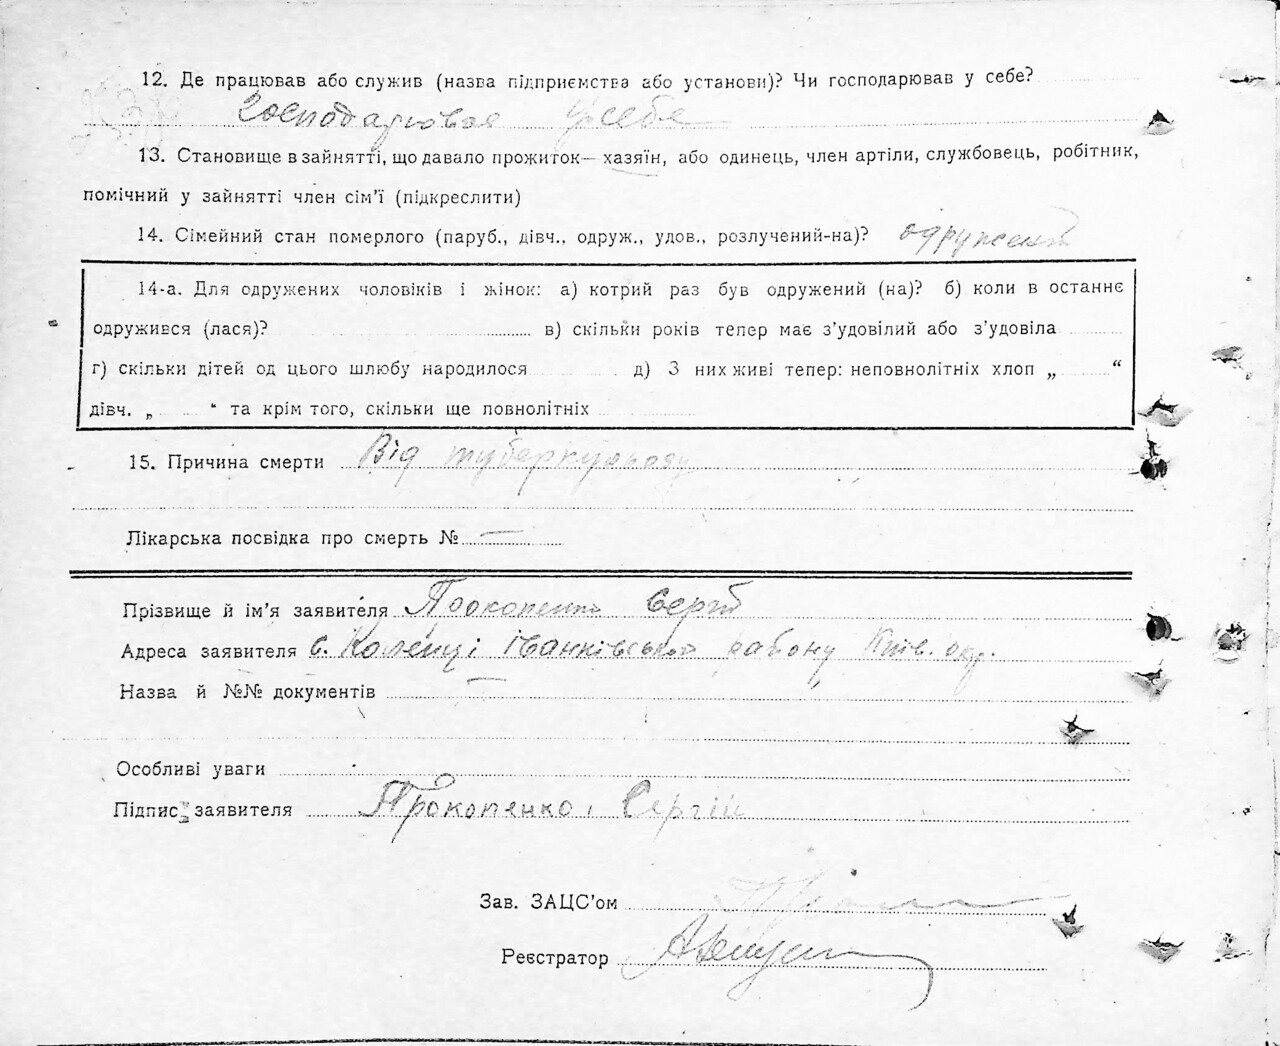 12. Де працював або служив (назва підприємства або установи)? Чи господарював у себе?
Господарював у себе
13. Становище в зайнятті, що давало прожиток— хазяїн, або одинець, член артіли, службовець, робітник,
помічний у зайнятті член сім’ї (підкреслити)
14. Сімейний стан померлого (паруб., дівч., одруж., удов., розлучений-на)? одружений
14-а. Для одружених чоловіків і жінок: а) котрий раз був одружений (на)? б) коли в останнє
одружився (лася)? в) скільки років тепер має з’удовілий або з’удовіла
г) скільки дітей од цього шлюбу народилося д) З них живі тепер: неповнолітніх хлоп „ “
дівч. „ “ та крім того, скільки ще повнолітніх
15. Причина смерти Від туберкульозу
Лікарська посвідка про смерть № —
Прізвище й ім’я заявителя Прокопенко Сергій
Адреса заявителя с. Коленці Іванківського району Київ. окр.
Назва й №№ документів —
Особливі уваги
Підпис заявителя Прокопенко Сергій
Зав. ЗАЦС’ом
Реєстратор